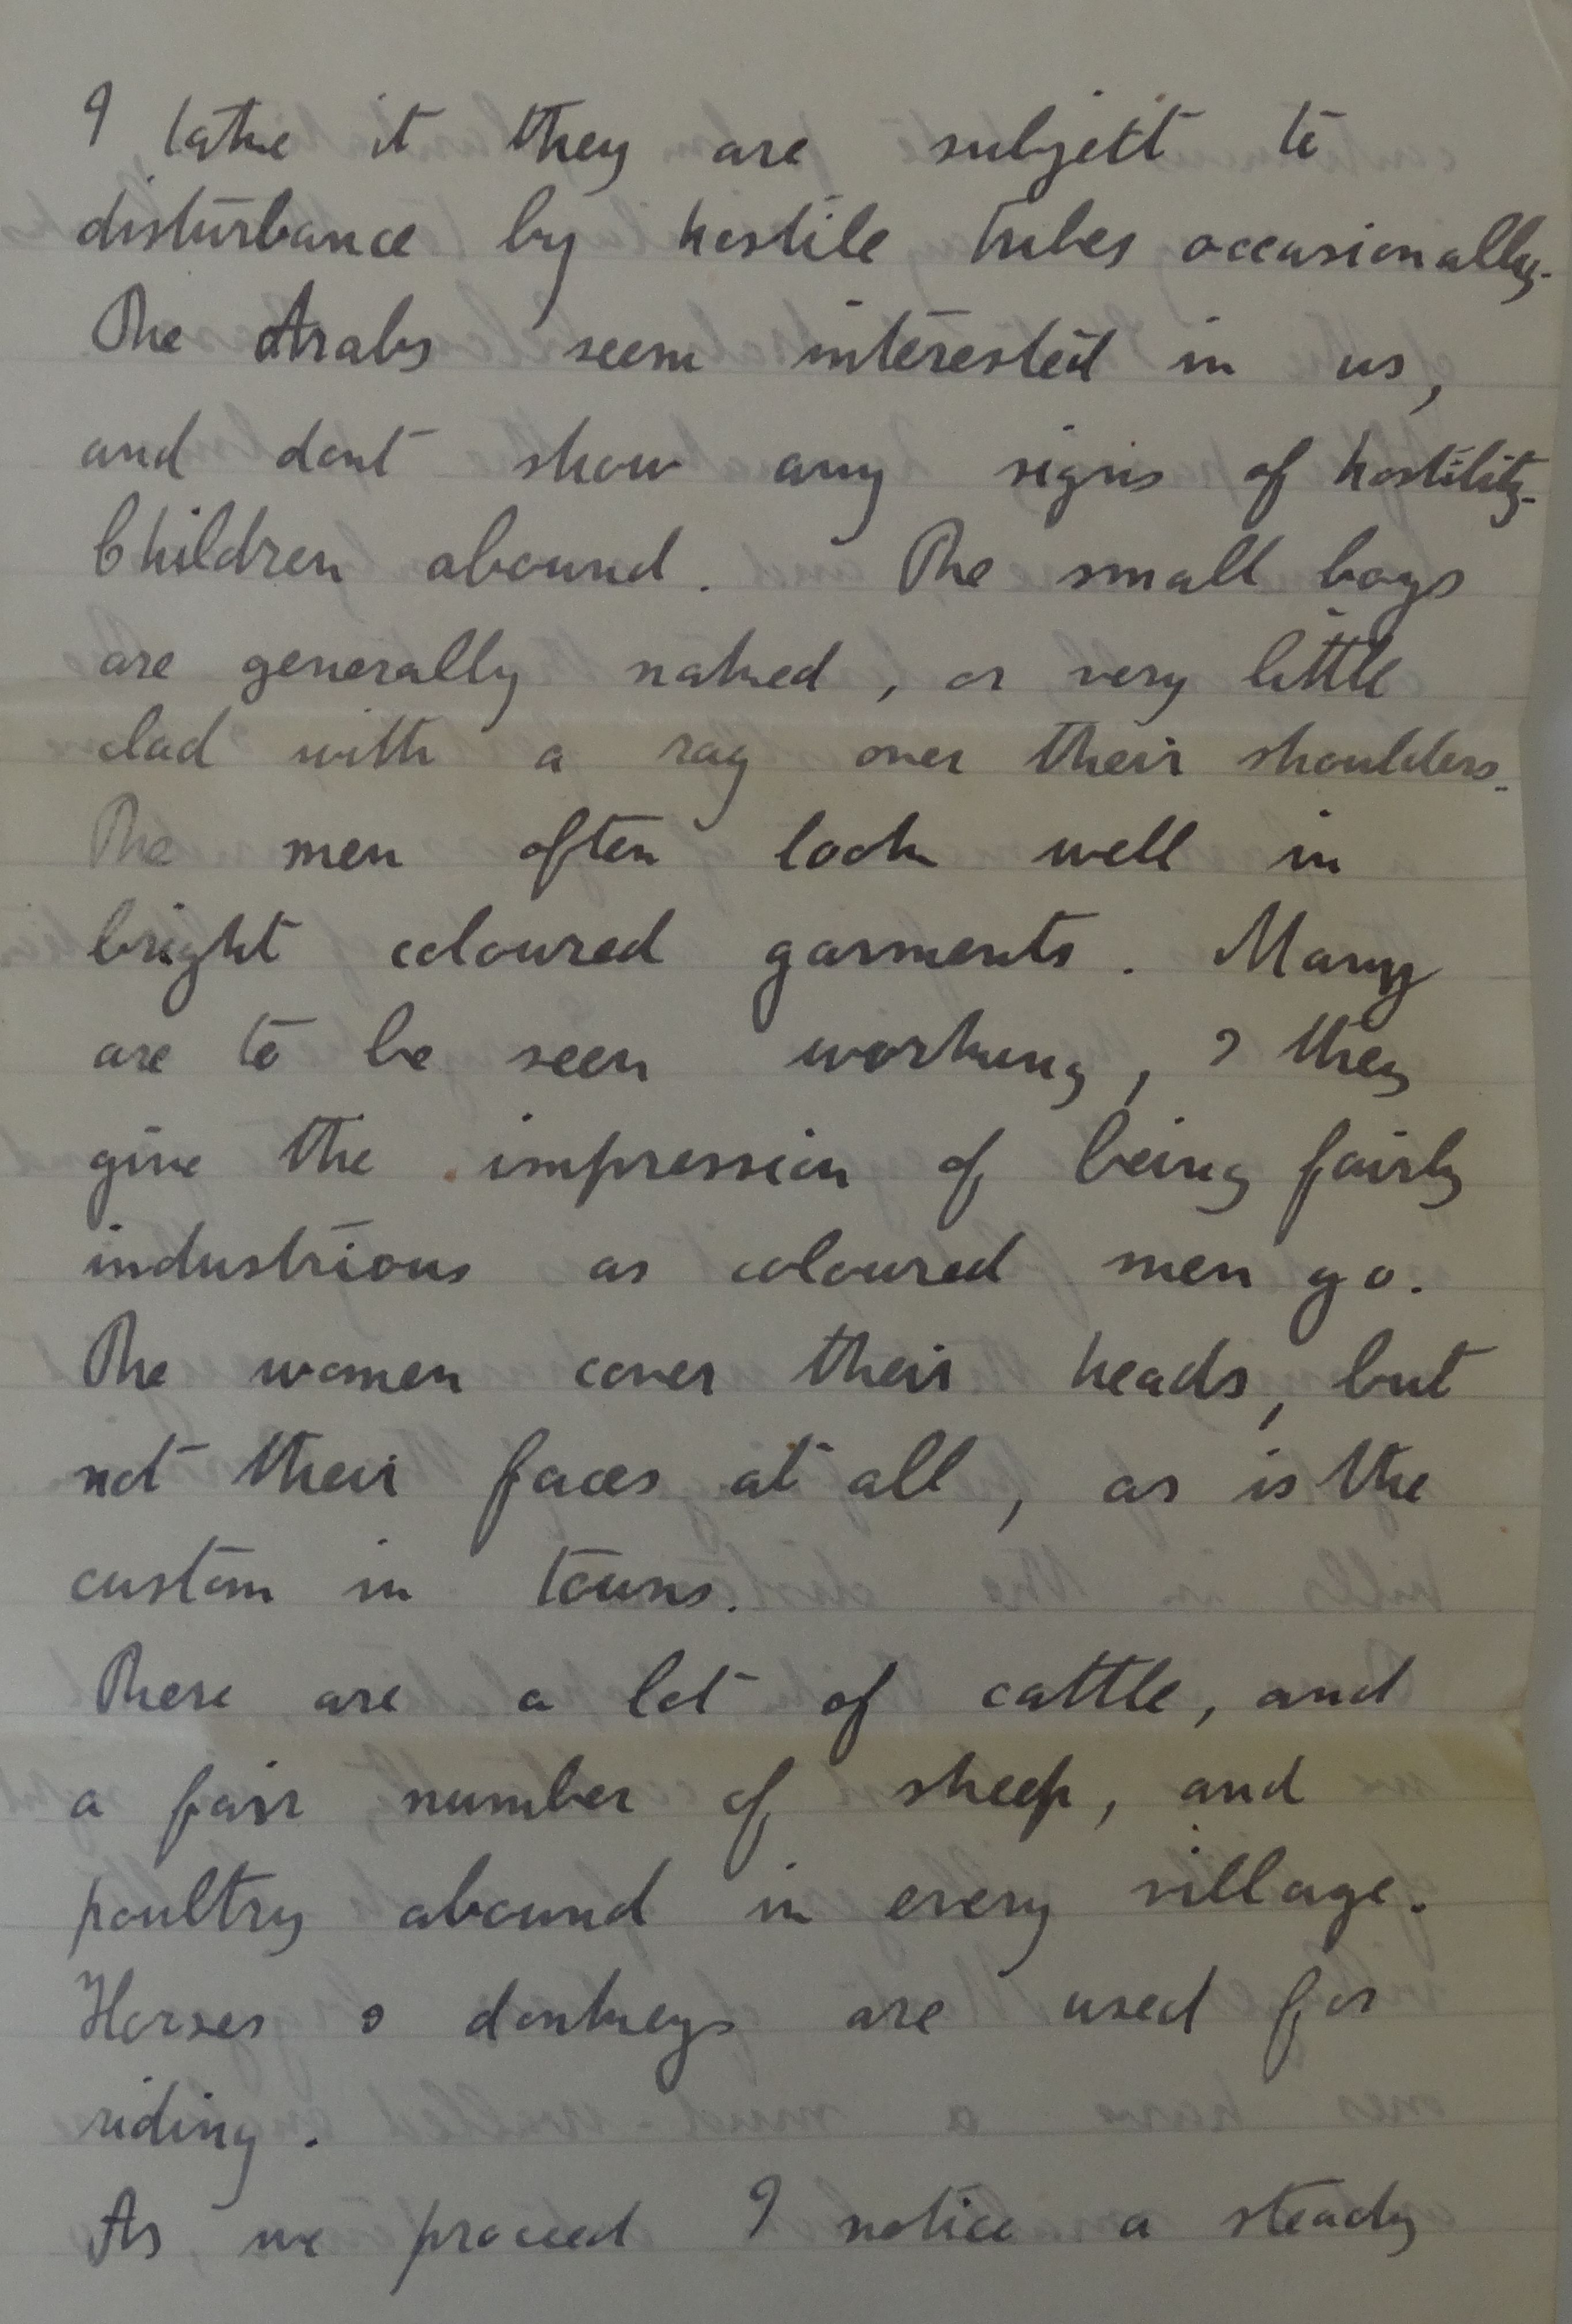 I take it they are subject to
disturbance by hostile tribes occasionally.
The Arabs seem interested in us,
and dont show any signs of hostility.
Children abound. The small boys
are generally naked, or very little
clad with a rag over their shoulders.
The men often look well in
bright coloured garments. Many
are to be seen working, & they
give the impression of being fairly
industrious as coloured men go.
The women cover their heads, but
not their faces at all, as is the
custom in towns.
There are a lot of cattle, and
a fair number of sheep, and
poultry abound in every village.
Horses & donkeys are used for
riding.
As we proceed I notice a steady